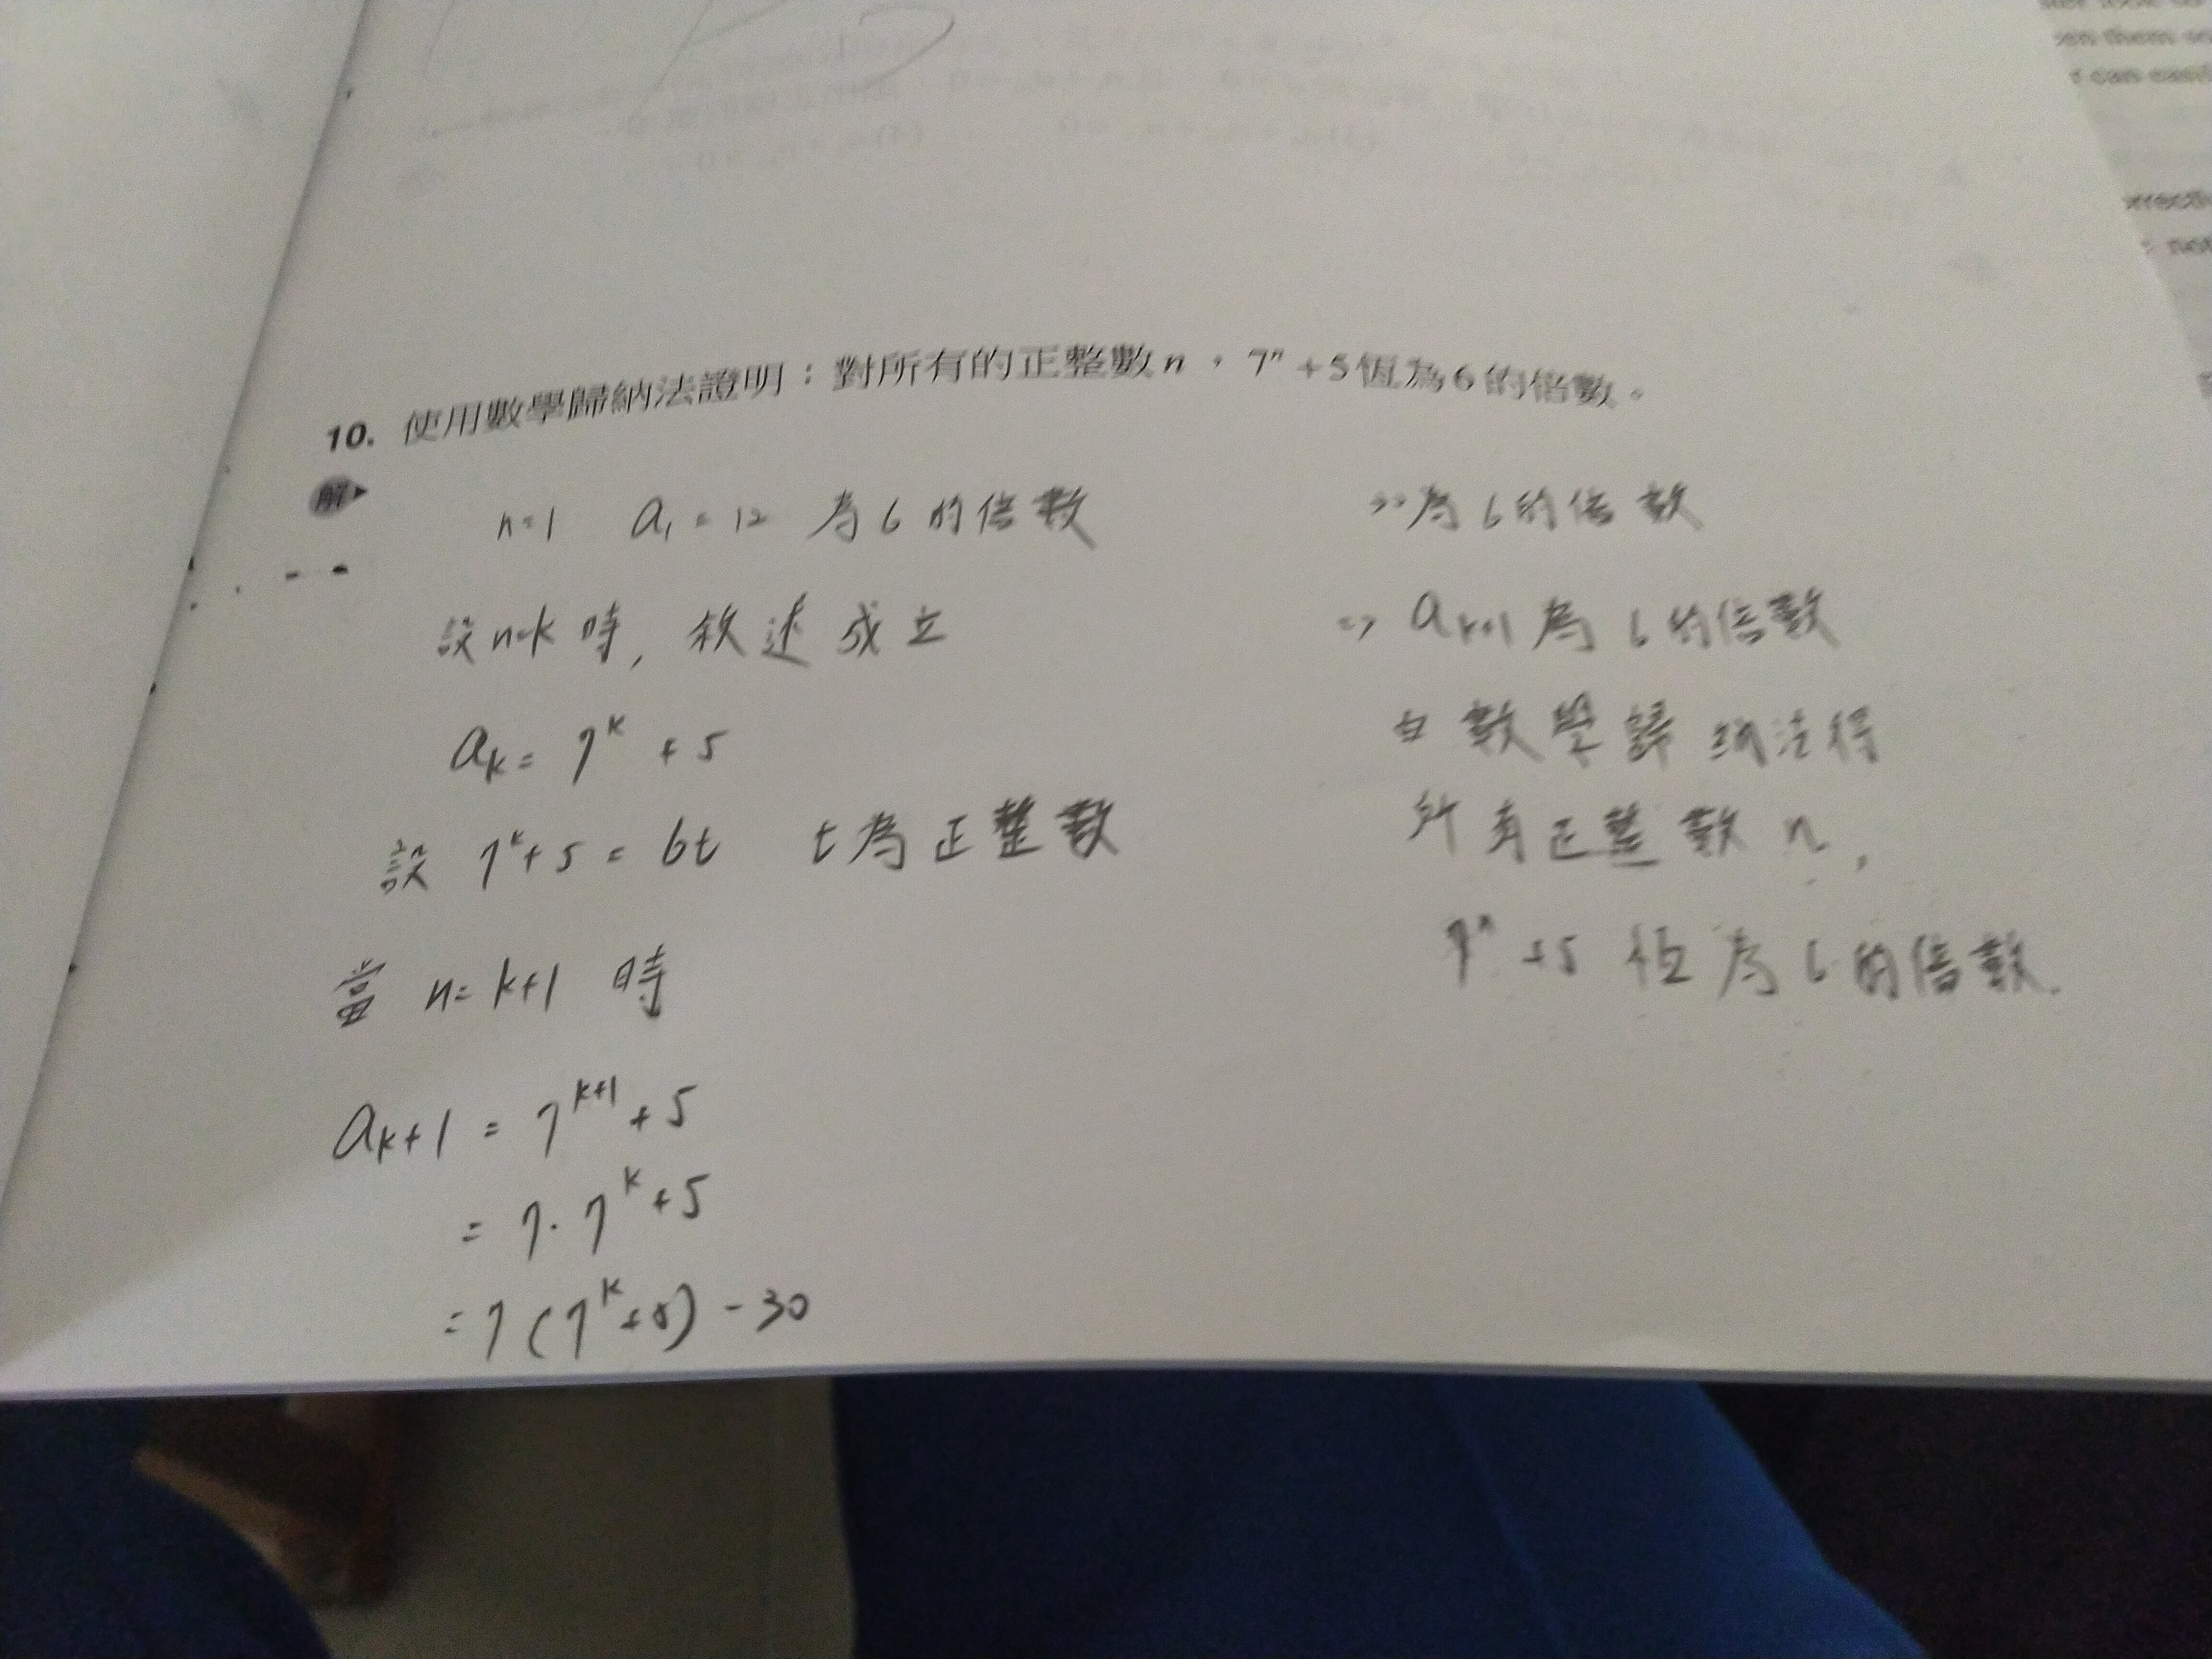 10. 使用數學歸納法證明：對所有的正整數n，7ⁿ+5恆為6的倍數。
解
n=1 a₁=12 為6的倍數
設n=k時, 敘述成立
aₖ=7ᵏ+5
設 7ᵏ+5=6t t為正整數
當 n=k+1 時
aₖ₊₁=7ᵏ⁺¹+5
=7·7ᵏ+5
=7(7ᵏ+5)-30
=>為6的倍數
=> aₖ₊₁為6的倍數
由數學歸納法得
所有正整數n,
7ⁿ+5 恆為6的倍數.
can easil